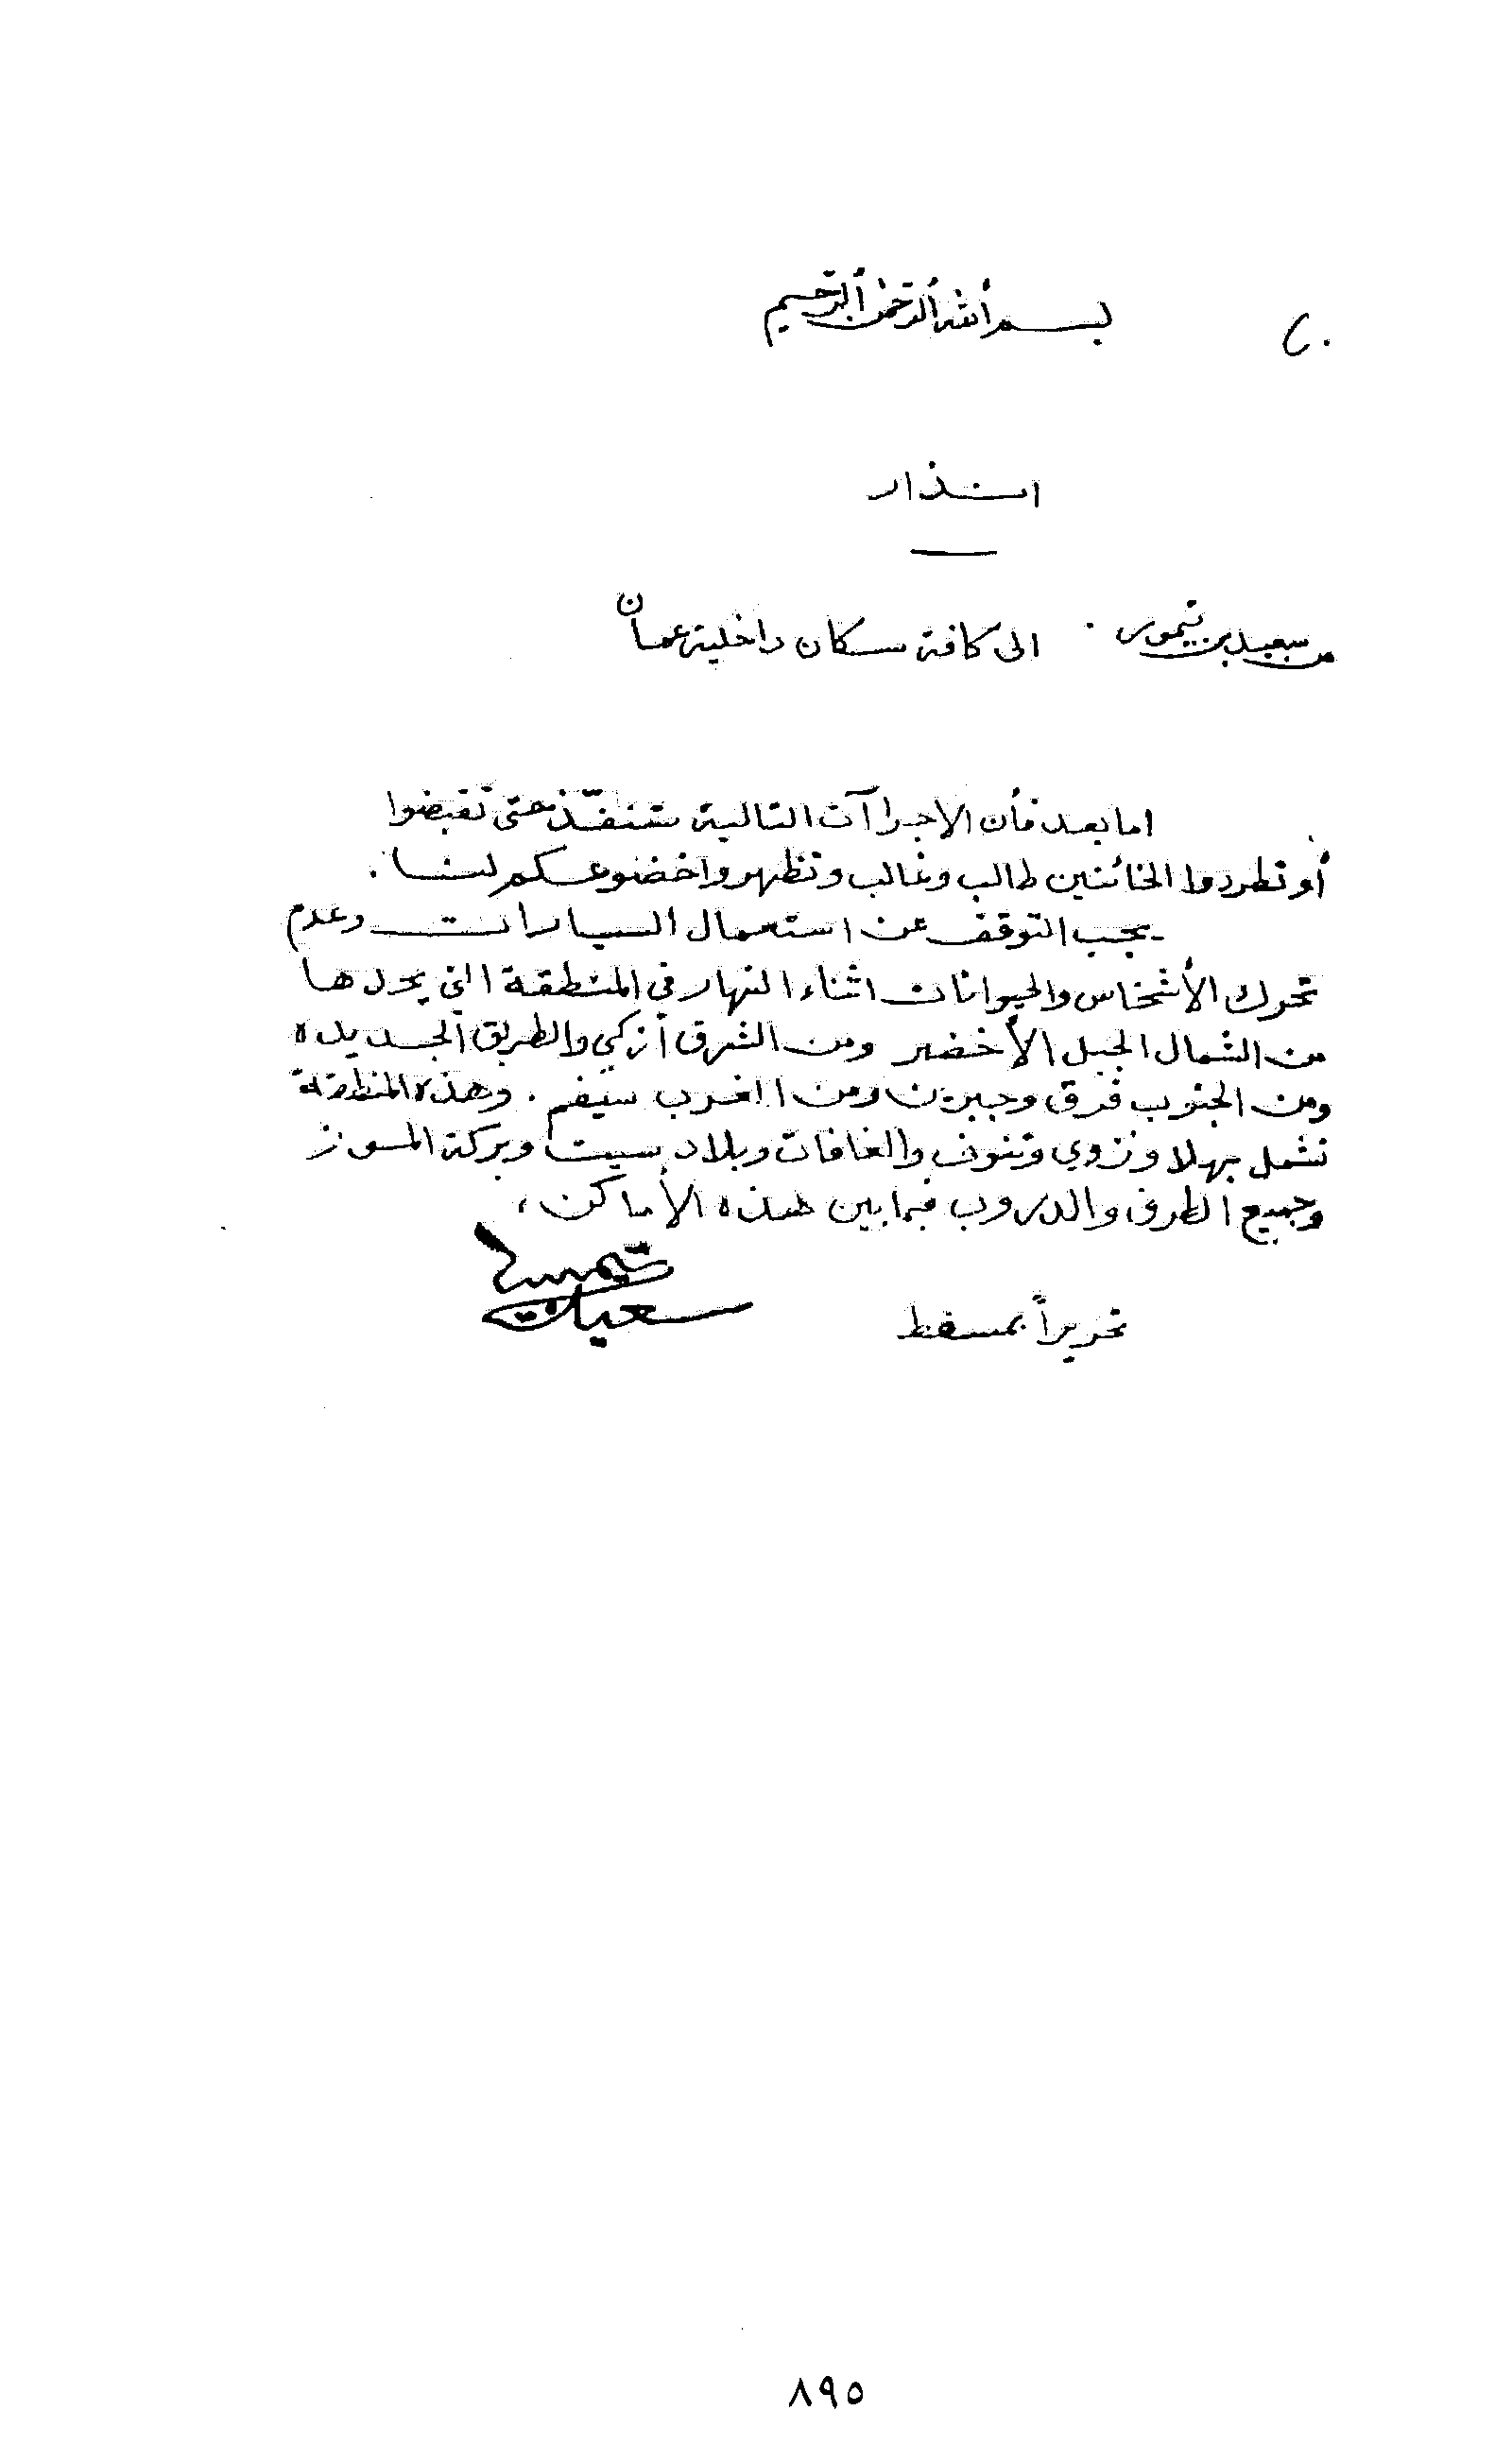 بسم الله الرحمن الرحيم
انذار
من سعيد بن تيمور . الى كافة سكان داخلية عمان
اما بعد فأن الاجراآت التالية ستنفّذ حتى تقبضوا
أو تطردوا الخائنين طالب وغالب وتظهروا خضوعكم لنا .
يجب التوقف عن استعمال السيارات وعدم
تحرك الأشخاص والحيوانات اثناء النهار في المنطقة التي يحدها
من الشمال الجبل الأخضر ومن الشرق أزكي والطريق الجديده
ومن الجنوب فرق وجبرين ومن الغرب سيفم . وهذه المنطقة
تشمل بهلا ونزوى وتنوف والغافات وبلاد سيت وبركة الموز
وجميع الطرق والدروب فيما بين هذه الأماكن ،
تحريراً بمسقط
سعيد بن تيمور
٨٩٥